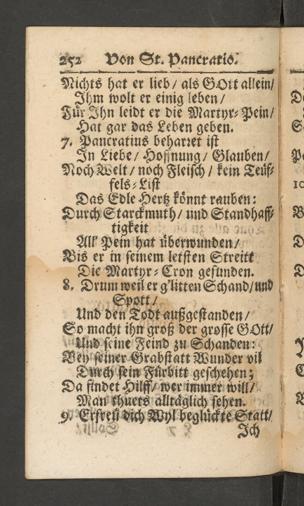 252 Von St. Pancratio.
Nichts hat er lieb / als GOtt allein /
Ihm wolt er einig leben /
Für Ihn leidt er die Martyr-Pein /
Hat gar das Leben geben.
7. Pancratius beharret ist
In Liebe / Hoffnung / Glauben /
Noch Welt / noch Fleisch / kein Teüf-
fels-List
Das Edle Hertz könnt rauben:
Durch Starckmuth / und Standhaff-
tigkeit
All' Pein hat überwunden /
Bis er in seinem letsten Streitt
Die Martyr-Cron gefunden.
8. Drum weil er g'litten Schand / und
Spott /
Und den Todt außgestanden /
So macht ihn groß der grosse GOtt /
Und seine Feind zu Schanden:
Bey seiner Grabstatt Wunder vil
Durch sein Fürbitt geschehen;
Da findet Hilff / wer immer will /
Man thuets alltäglich sehen.
9. Erfreü dich Wyl beglückte Statt /
Ich